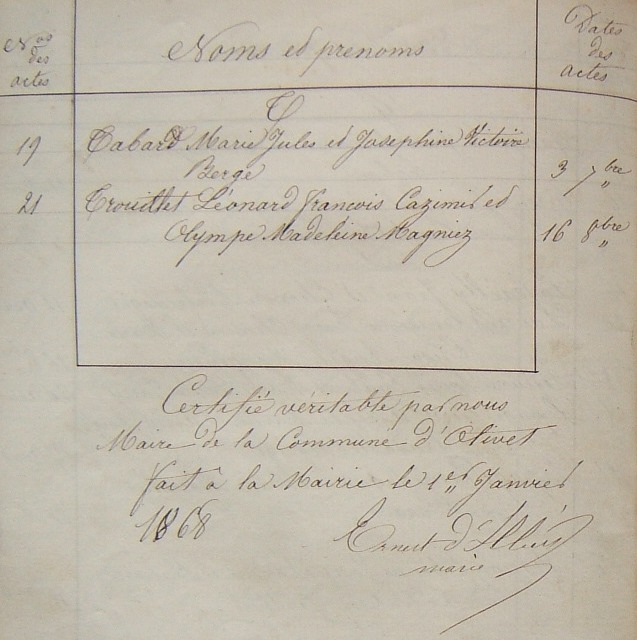 Nos des actes
Noms et prenoms
Dates des actes
T
19 Tabard Marie Jules et Josephine Victoire
Berge 3 7bre "
21 Trouillet Léonard françois Cazimir et
Olympe Madeleine Magniez 16 8bre "
Certifié véritable par nous
Maire de la Commune d'Olivet
fait a la Mairie le 1er Janvier
1868
Ernest d'
maire